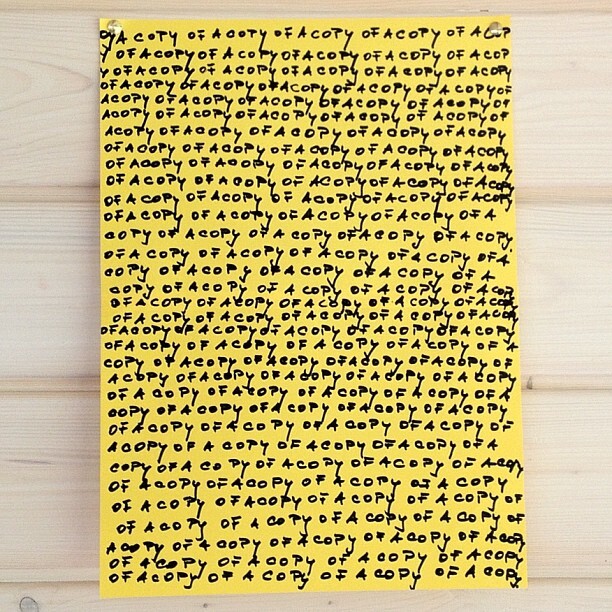 OF A COPY OF A COPY OF A COPY OF A COP
Y OF A COPY OF A COPY OF A COPY OF A COP
Y OF A COPY OF A COPY OF A COPY OF A COPY
OF A COPY OF A COPY OF A COPY OF A COPY OF
A COPY OF A COPY OF A COPY OF A COPY OF
A COPY OF A COPY OF A COPY OF A COPY OF
A COPY OF A COPY OF A COPY OF A COPY
OF A COPY OF A COPY OF A COPY OF A COPY
OF A COPY OF A COPY OF A COPY OF A COPY
OF A COPY OF A COPY OF A COPY OF A COPY
OF A COPY OF A COPY OF A COPY OF A COPY
OF A COPY OF A COPY OF A COPY OF A
COPY OF A COPY OF A COPY OF A COPY
OF A COPY OF A COPY OF A COPY OF A
COPY OF A COPY OF A COPY OF A
COPY OF A COPY OF A COPY OF A COPY
OF A COPY OF A COPY OF A COPY OF A COPY
OF A COPY OF A COPY OF A COPY OF A COPY
OF A COPY OF A COPY OF A COPY OF A COPY OF A COPY
OF A COPY OF A COPY OF A COPY OF A COPY OF A
COPY OF A COPY OF A COPY OF A COPY OF A COPY
A COPY OF A COPY OF A COPY OF A COPY OF A COPY
OF A COPY OF A COPY OF A COPY OF A COPY
COPY OF A COPY OF A COPY OF A COPY
OF A COPY OF A COPY OF A COPY OF A COPY
A COPY OF A COPY OF A COPY OF A COPY OF A
COPY OF A COPY OF A COPY OF A COPY OF A COPY
OF A COPY OF A COPY OF A COPY OF A COPY
OF A COPY OF A COPY OF A COPY OF A COPY OF
OF A COPY OF A COPY OF A COPY OF A COPY OF
A COPY OF A COPY OF A COPY OF A COPY
OF A COPY OF A COPY OF A COPY OF A COPY
OF A COPY OF A COPY OF A COPY OF A COPY